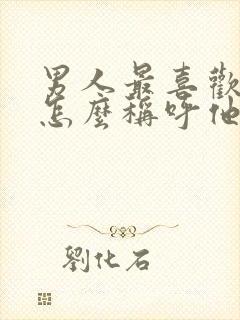 男人最喜歡
怎麼稱呼他
劉化石